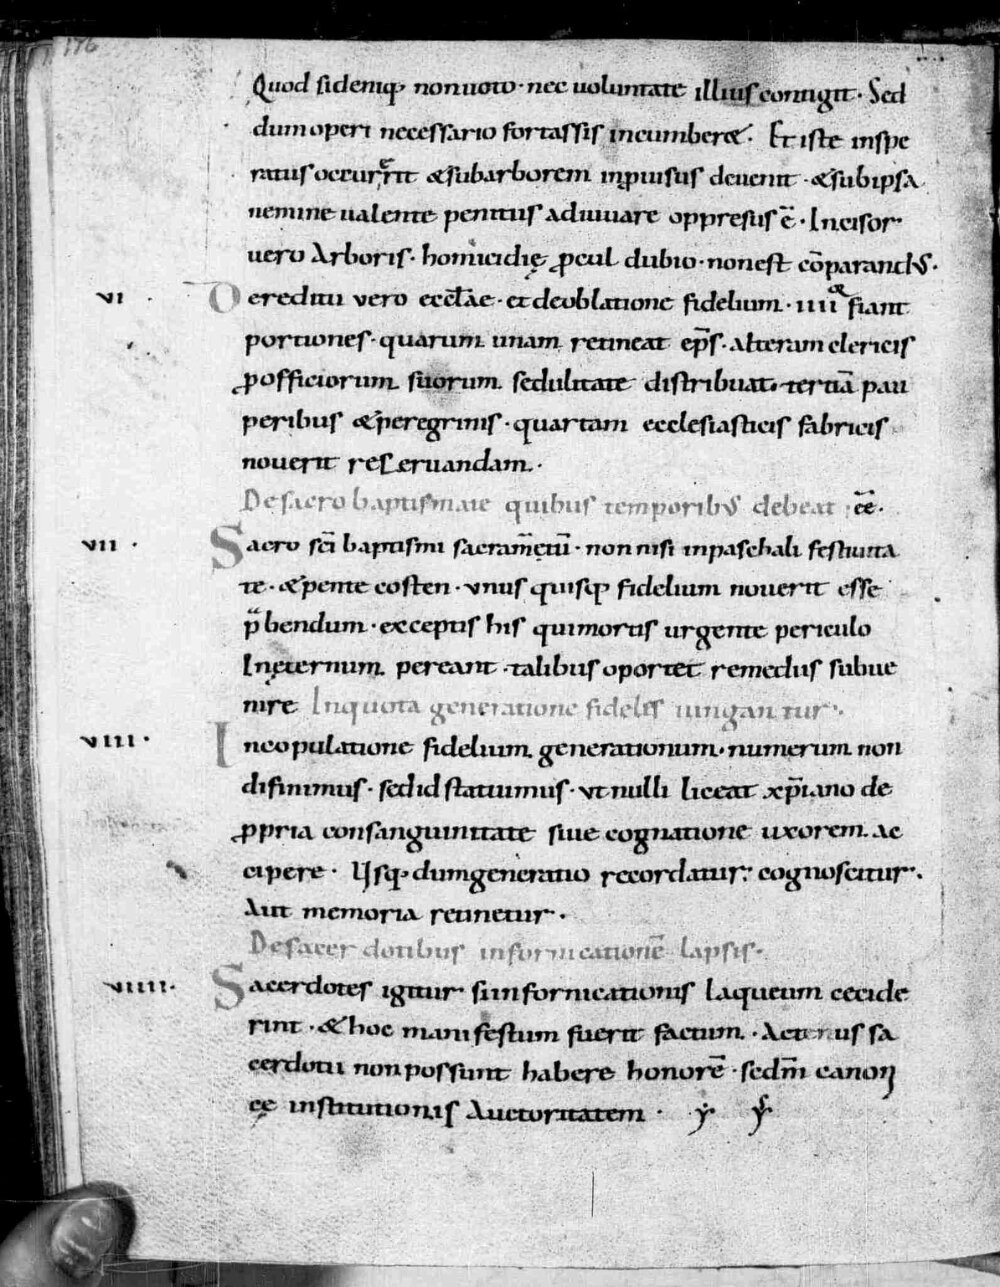 176
Quod si deniq; non uoto · nec uoluntate illius contigit · Sed
dum operi necessario fortassis incumberet · Et iste inspe
ratus occurrerit & sub arborem inpiusus deuenit · & sub ipsa
nemine ualente penitus adiuuare oppresus ē · Incisor
uero Arboris · homicidię ꝓcul dubio · non est cōparandus ·
VI · De reditu vero eccl̄ae · et de oblatione fidelium · IIIIor fiant
portiones · quarum unam retineat ep̄s · alteram clericis
ꝓ officiorum suorum sedulitate distribuat · tertiā pau
peribus & peregrinis · quartam ecclesiasticis fabricis
nouerit reseruandam ·
De sacro baptismate quibus temporibus debeat · ēē ·
VII · Sacro sc̄i baptismi sacram̄etū · non nisi in paschali festiuita
te · & pente costen · vnus quisq; fidelium nouerit esse
p̄bendum · exceptis his qui mortis urgente periculo
Ineternum pereant · talibus oportet remediis subue
nire In quota generatione fidelis iungantur ·
VIII · In copulatione fidelium generationum · numerum non
difinimus · sed id statuimus · vt nulli liceat xp̄iano de
ꝓpria consanguinitate siue cognatione uxorem ac
cipere · Usq; dum generatio recordatur · cognoscitur ·
Aut memoria retinetur ·
De sacerdotibus in fornicationē lapsis ·
VIIII · Sacerdotes igitur si in fornicationis laqueum cecide
rint · & hoc manifestum fuerit factum · Actenus sa
cerdotii non possunt habere honorē · sedm̄ canon
cę institutionis Auctoritatem ·